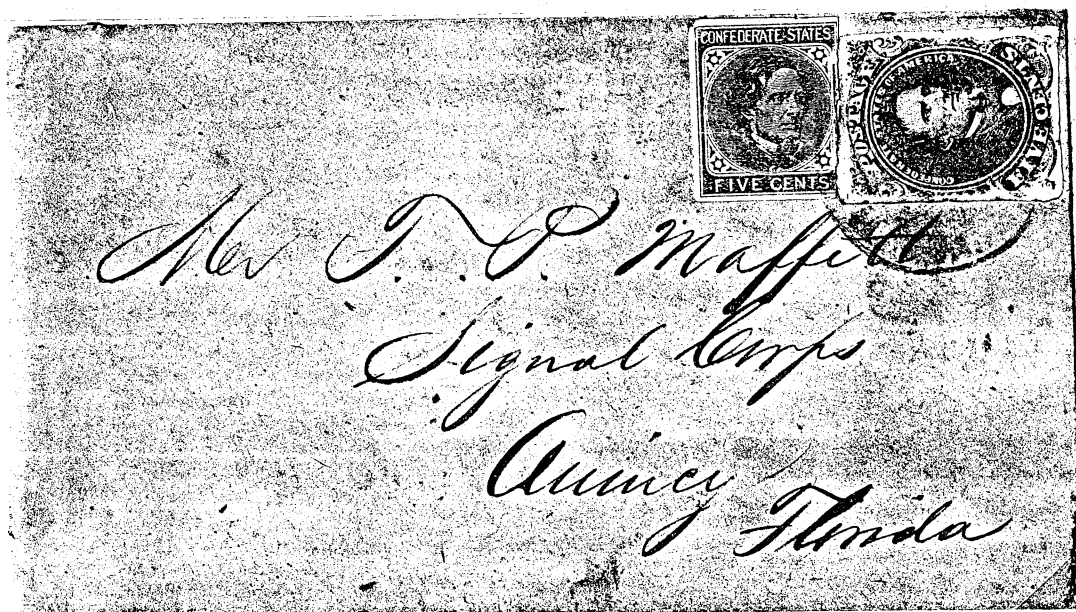 CONFEDERATE STATES
FIVE CENTS
POSTAGE
CONFEDERATE STATES OF AMERICA
FIVE CENTS
Mr T. P. Maffett
Signal Corps
Quincy
Florida